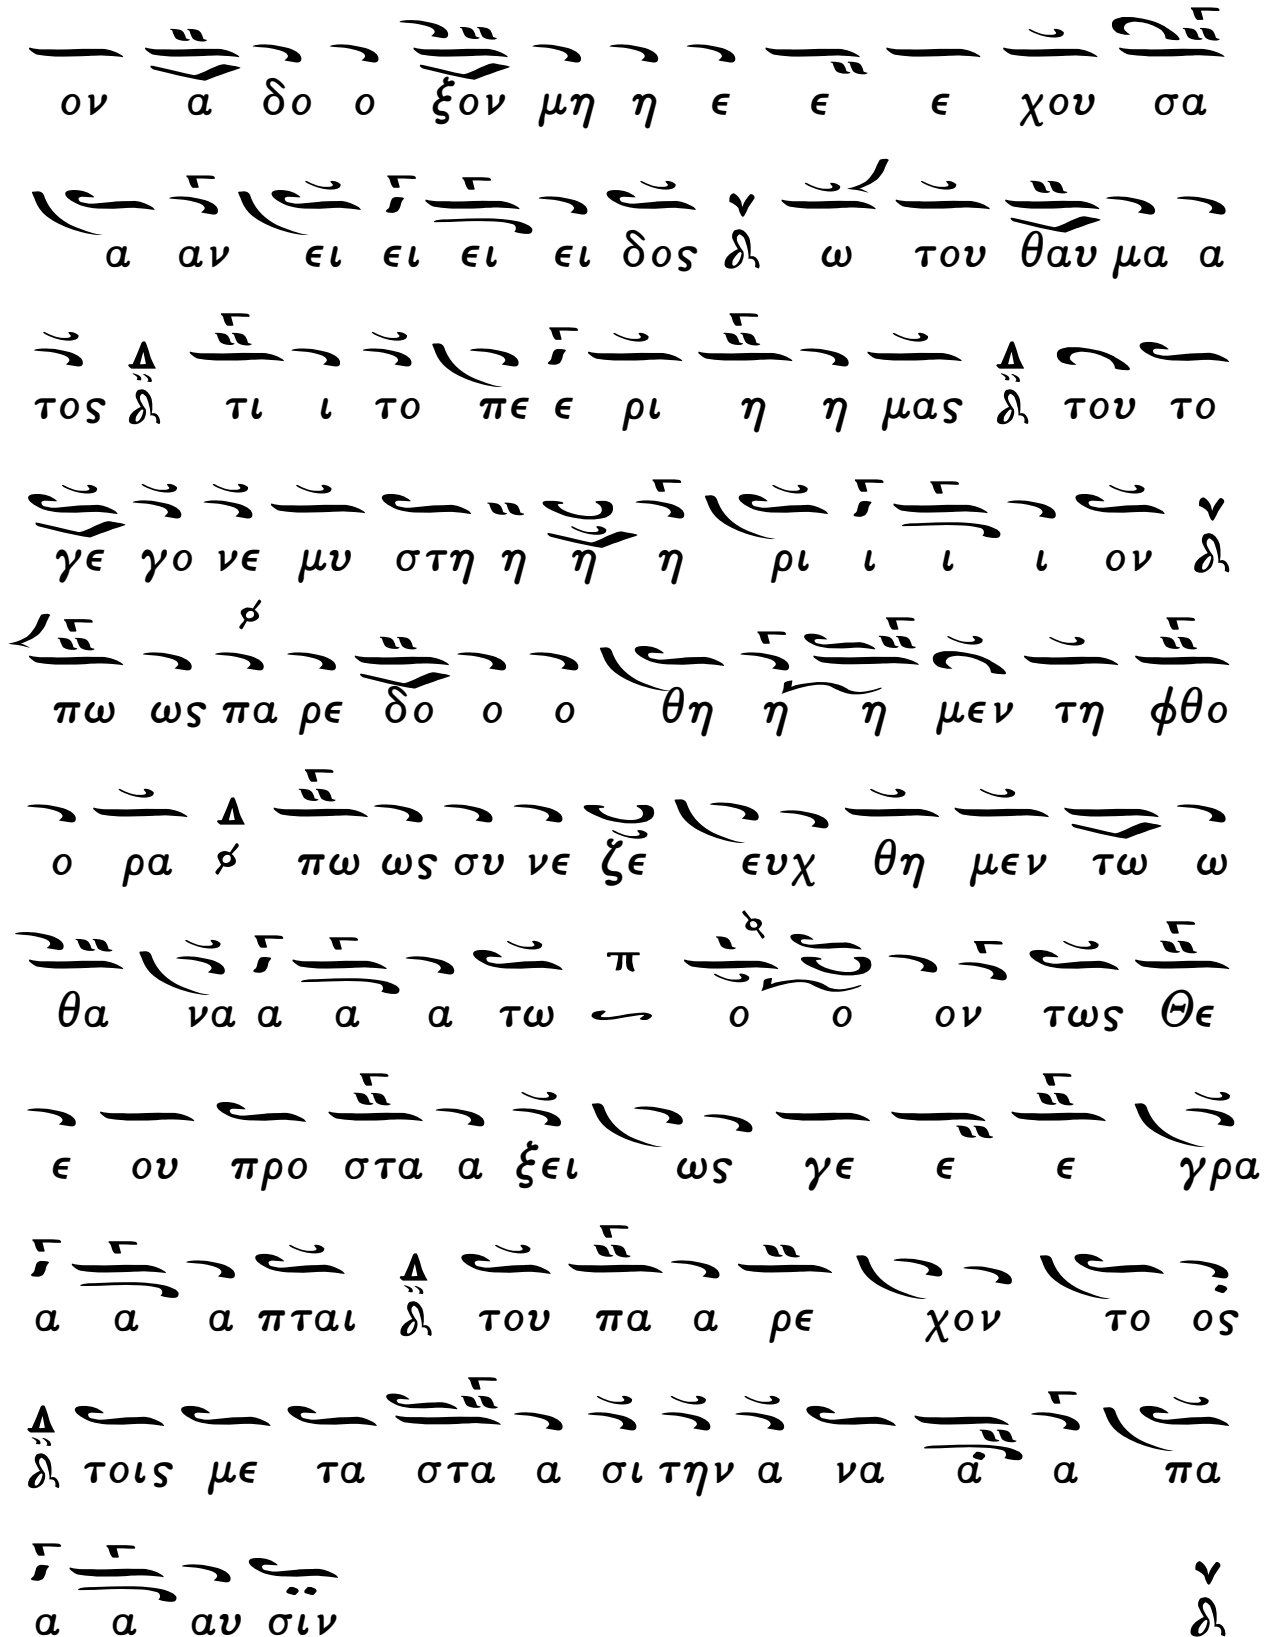 ον α δο ο ξον μη η ε ε ε χου σα
α αν ει ει ει ει δος ω του θαυ μα α
τος τι ι το πε ε ρι η η μας του το
γε γο νε μυ στη η η η ρι ι ι ι ον
πω ως πα ρε δο ο ο θη η η μεν τη φθο
ο ρα πω ως συ νε ζε ευχ θη μεν τω ω
θα να α α α τω ο ο ον τως Θε
ε ου προ στα α ξει ως γε ε ε γρα
α α α πται του πα α ρε χον το ος
τοις με τα στα α σι την α να α α πα
α α αυ σιν